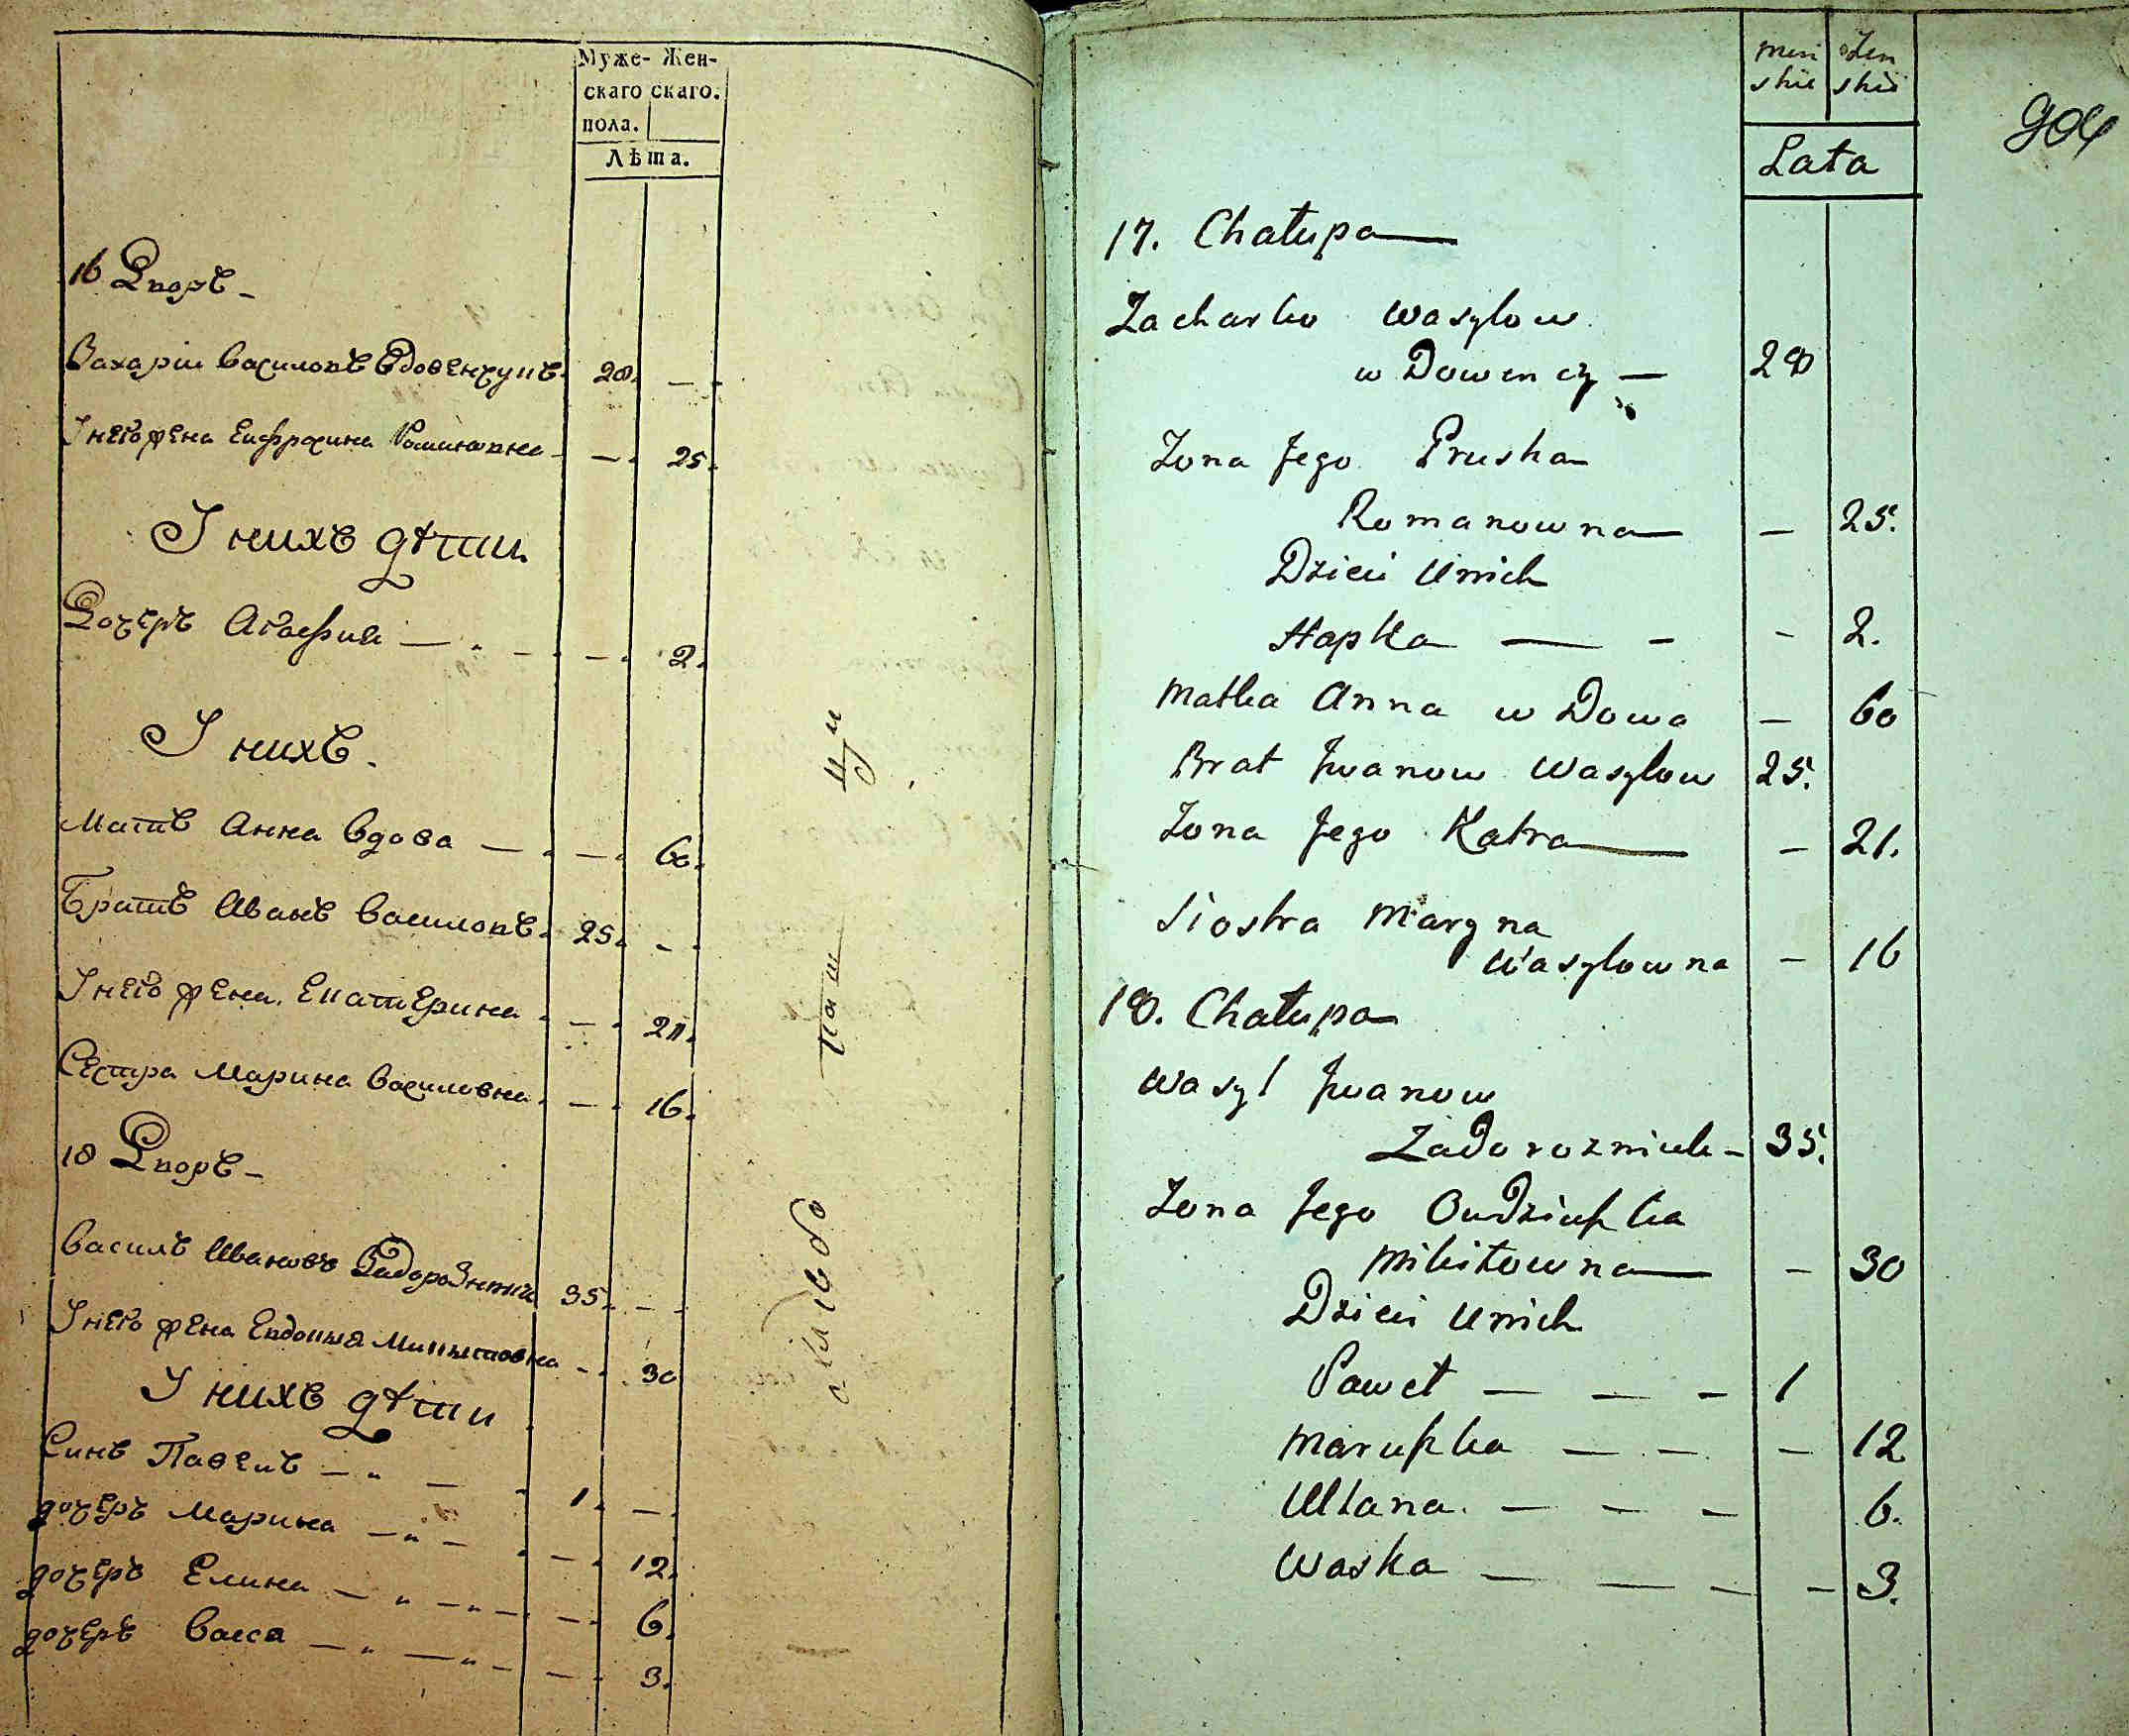 Муже- Жен-
скаго скаго.
пола.
Лѣта.
16 Дворъ -
Захарія Василовъ Вдовенчукъ. 28. — -
У него жена Евфросина Романовна - — . 25.
У нихъ дѣти
Дочеръ Агафия — . - . - . 2.
У нихъ.
Матъ Анна вдова — . — . 60.
Братъ Иванъ Василовъ. 25. - .
У него жена Екатерина . — . 21.
Сестра Марина Василовна . — . 16.
18 Дворъ -
Василъ Ивановъ Задорожнии 35. - -
У него жена Евдокия Микитовна - - 30
У нихъ дѣти
Синъ Павелъ — „ — . 1. — .
дочеръ Марина — „ — . — . 12.
дочеръ Елина — „ — „ — — . 6.
дочеръ Васса — „ — „ — — . 3.
men żen
skie skie
Lata
904
17. Chałupa —
Zacharko Wasylow
w Dowenczy — 28
Żona Jego Pruska
Romanowna — — 25.
Dzieci Unich
Hapka — - - 2.
Matka Anna w Dowa — 60
Brat Jwanow Wasylow 25.
Żona Jego Katra — — 21.
Siostra Maryna
Wasylowna — 16
18. Chałupa
Wasyl Jwanow
Zadorozniuk - 35.
Żona Jego Oudziuszka
Mikitowna — — 30
Dzieci Unich
Paweł — — — 1
Maruszka — — — 12
Ulana. — — — 6.
Waska — — — — 3.